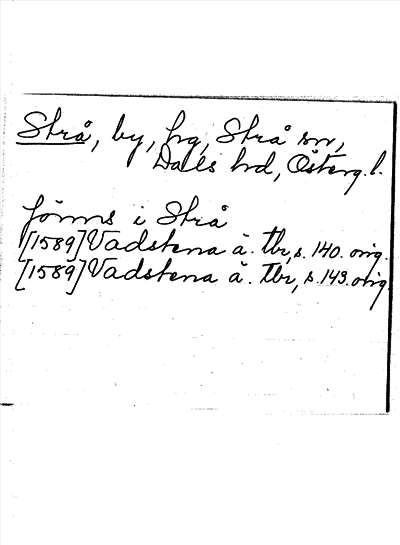 Strå, by, hg, Strå sn,
Dals hd, Österg. l.
förms i Strå
[1589] Vadstena ä. tbr, s. 140. orig.
[1589] Vadstena ä. tbr, s. 143. orig.